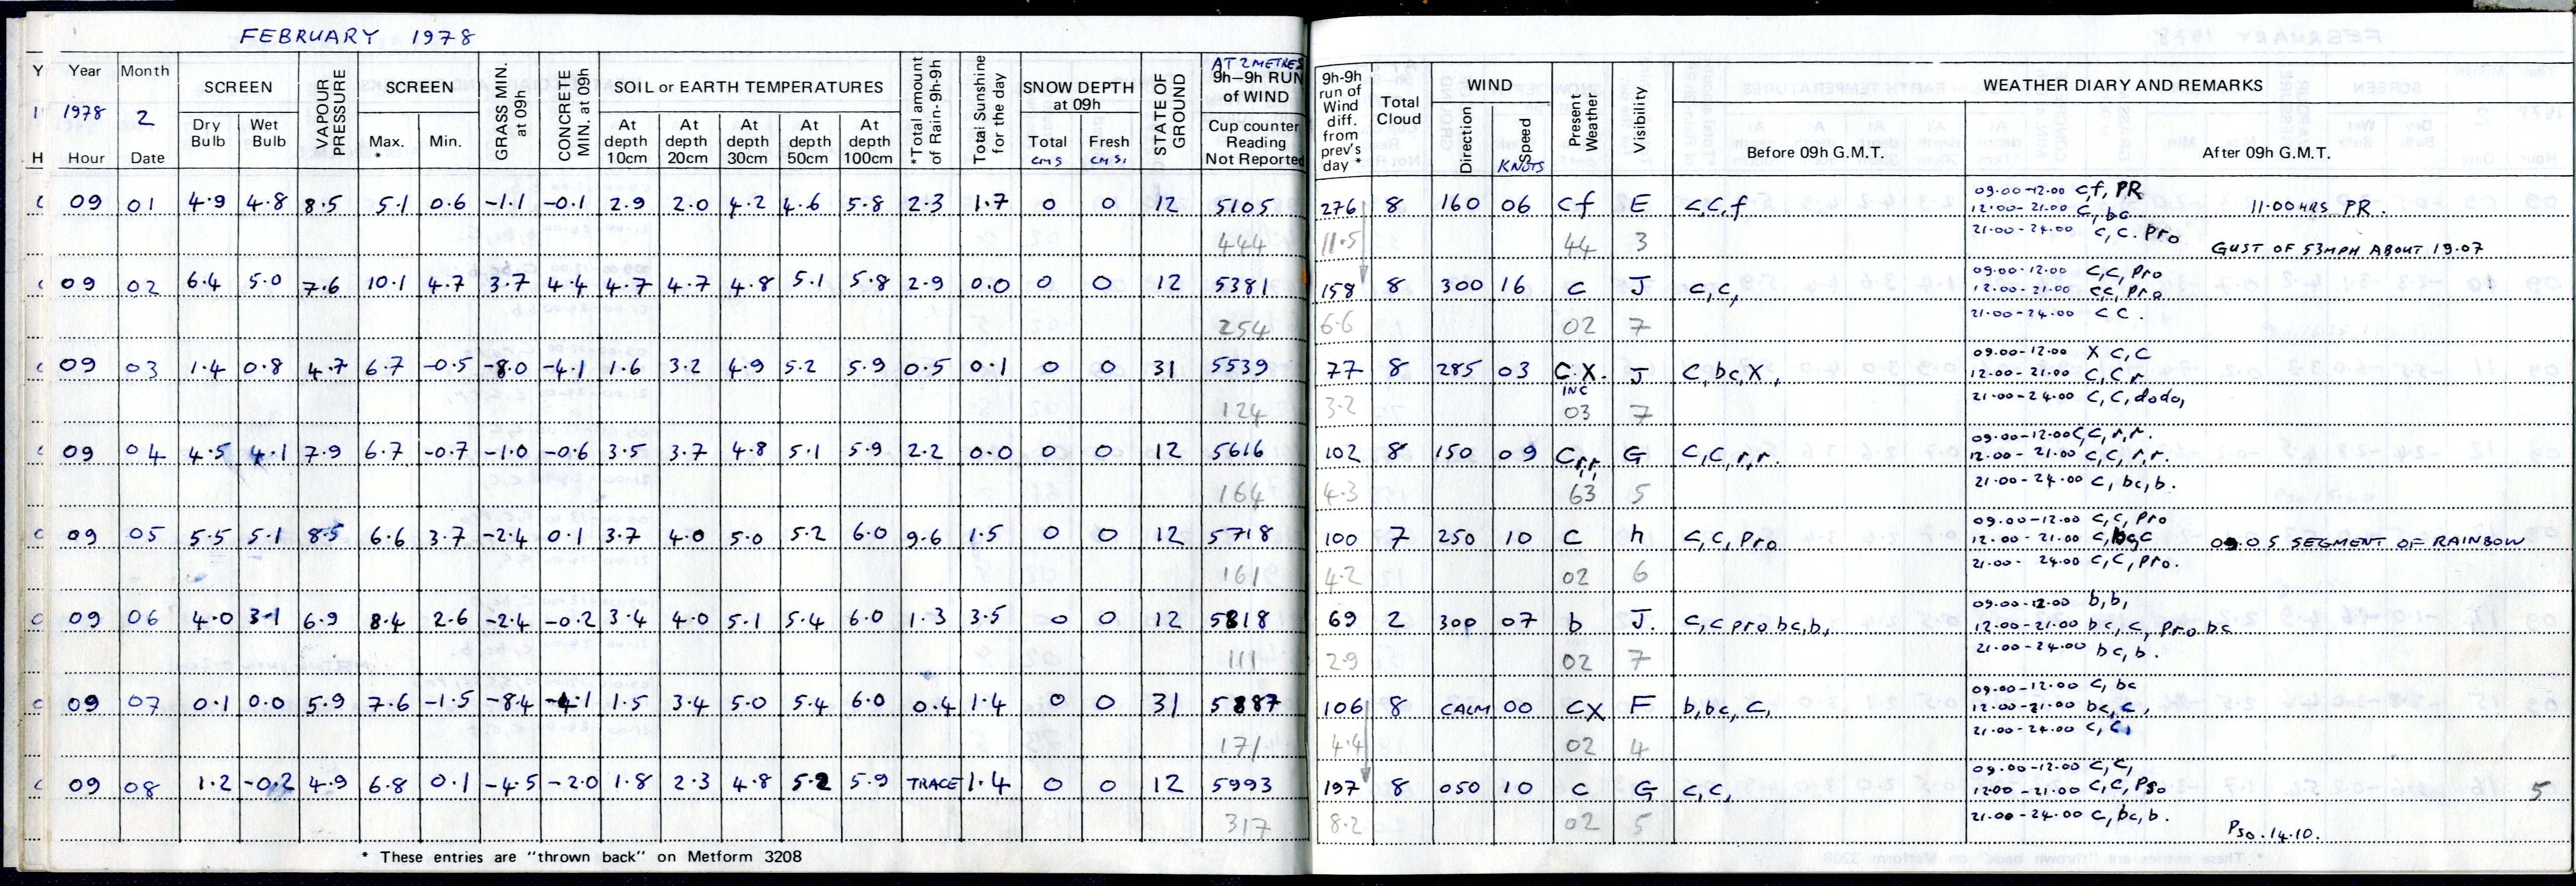 FEBRUARY 1978
Y Year Month SCREEN VAPOUR PRESSURE SCREEN GRASS MIN. at 09h CONCRETE MIN. at 09h SOIL or EARTH TEMPERATURES *Total amount of Rain-9h-9h Total Sunshine for the day SNOW DEPTH at 09h STATE OF GROUND AT 2 METRES 9h–9h RUN of WIND 9h-9h run of Wind diff. from prev's day * Total Cloud WIND Present Weather Visibility WEATHER DIARY AND REMARKS
1 1978 2
H Hour Date Dry Bulb Wet Bulb Max. * Min. At depth 10cm At depth 20cm At depth 30cm At depth 50cm At depth 100cm Total cms Fresh cms. Cup counter Reading Not Reported Direction Speed KNOTS Before 09h G.M.T. After 09h G.M.T.
09 01 4.9 4.8 8.5 5.1 0.6 -1.1 -0.1 2.9 2.0 4.2 4.6 5.8 2.3 1.7 0 0 12 5105 276 8 160 06 cf E c,c,f 09.00-12.00 cf, PR
12.00-21.00 c, bc 11.00 HRS PR.
444 11.5 44 3 21.00-24.00 c, c. Pro
GUST OF 53MPH ABOUT 19.07
09 02 6.4 5.0 7.6 10.1 4.7 3.7 4.4 4.7 4.7 4.8 5.1 5.8 2.9 0.0 0 0 12 5381 158 8 300 16 c J c,c, 09.00-12.00 c,c, Pro
12.00-21.00 c,c, Pro
254 6.6 02 7 21.00-24.00 c c.
09 03 1.4 0.8 4.7 6.7 -0.5 -8.0 -4.1 1.6 3.2 4.9 5.2 5.9 0.5 0.1 0 0 31 5539 77 8 285 03 C.X. INC J c,bc,X, 09.00-12.00 X c, c
12.00-21.00 c, c r
124 3.2 03 7 21.00-24.00 c, c, dodo,
09 04 4.5 4.1 7.9 6.7 -0.7 -1.0 -0.6 3.5 3.7 4.8 5.1 5.9 2.2 0.0 0 0 12 5616 102 8 150 09 Crr, G c,c,r,r. 09.00-12.00 c,c, r,r.
12.00-21.00 c,c, r,r.
164 4.3 63 5 21.00-24.00 c, bc,b.
09 05 5.5 5.1 8.5 6.6 3.7 -2.4 0.1 3.7 4.0 5.0 5.2 6.0 9.6 1.5 0 0 12 5718 100 7 250 10 c h c,c, Pro 09.00-12.00 c,c, Pro
12.00-21.00 c,bc,c 09.05 SEGMENT OF RAINBOW
161 4.2 02 6 21.00-24.00 c,c, pro.
09 06 4.0 3.1 6.9 8.4 2.6 -2.4 -0.2 3.4 4.0 5.1 5.4 6.0 1.3 3.5 0 0 12 5818 69 2 300 07 b J. c,c pro bc,b, 09.00-12.00 b,b,
12.00-21.00 bc, c, pro bc
111 2.9 02 7 21.00-24.00 bc, b.
09 07 0.1 0.0 5.9 7.6 -1.5 -8.4 -4.1 1.5 3.4 5.0 5.4 6.0 0.4 1.4 0 0 31 5887 106 8 CALM 00 cx F b,bc, c, 09.00-12.00 c, bc
12.00-21.00 bc, c,
171 4.4 02 4 21.00-24.00 c, c,
09 08 1.2 -0.2 4.9 6.8 0.1 -4.5 -2.0 1.8 2.3 4.8 5.2 5.9 TRACE 1.4 0 0 12 5993 197 8 050 10 c G c,c, 09.00-12.00 c, c,
12.00-21.00 c,c, Pso 5
317 8.2 02 5 21.00-24.00 c, bc, b.
Pso. 14.10.
* These entries are "thrown back" on Metform 3208